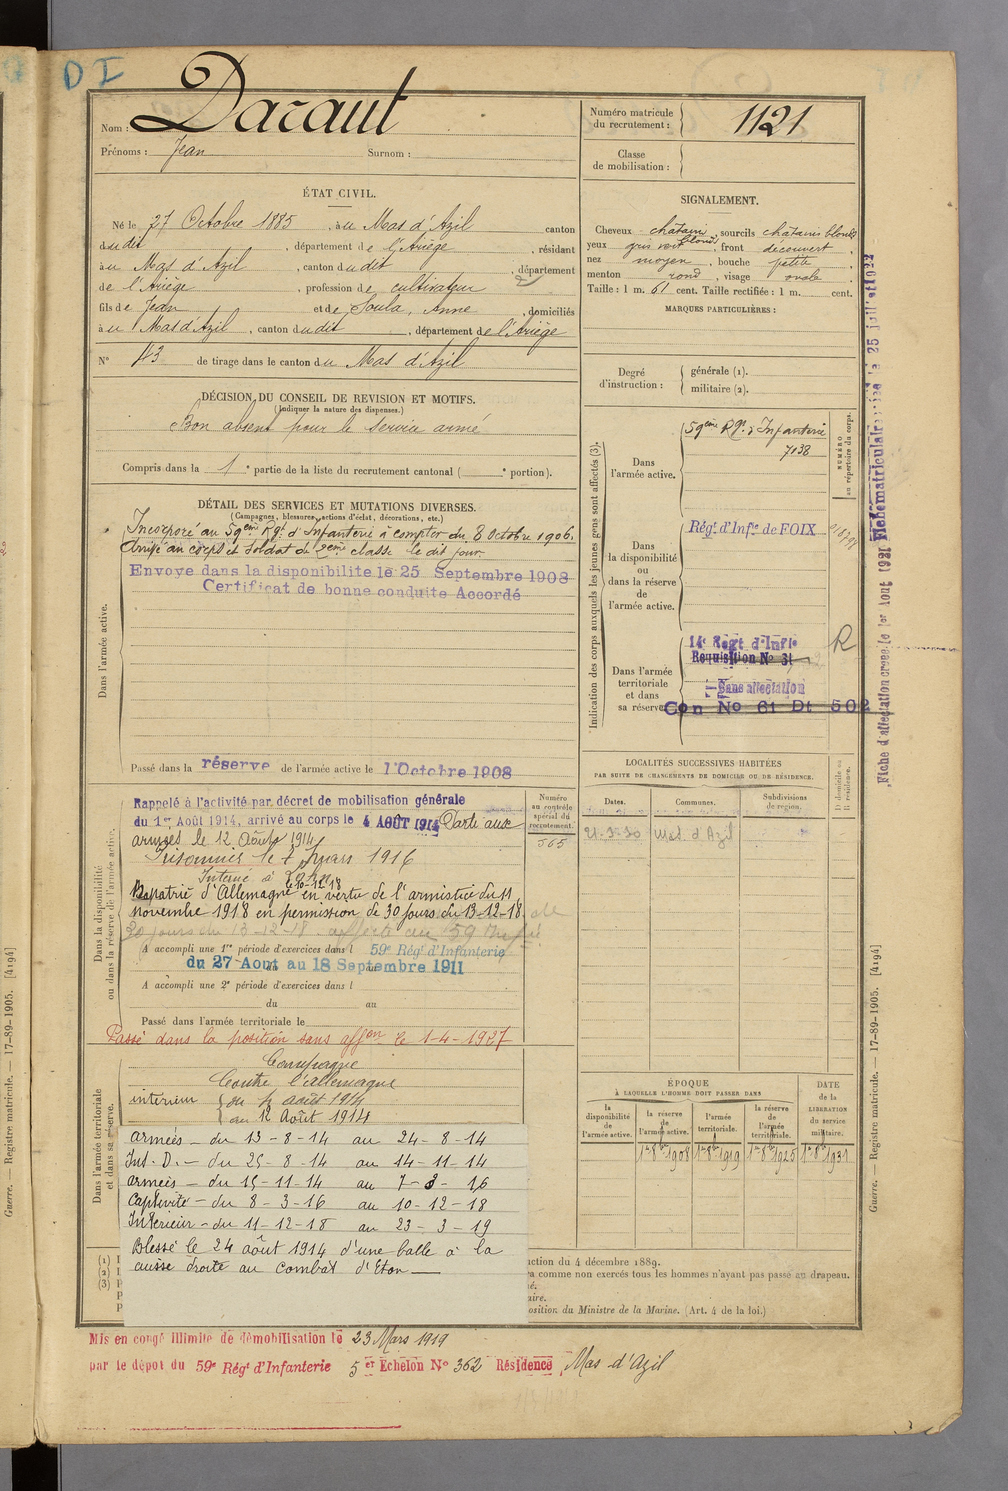 DI
Nom : Daraut
Prénoms : Jean Surnom :
Numéro matricule du recrutement : 1121
Classe de mobilisation :
ÉTAT CIVIL.
Né le 27 Octobre 1885, à au Mas d'Azil canton
dudit, département de l'Ariège, résidant
au Mas d'Azil, canton dudit, département
de l'Ariège, profession de cultivateur
fils de Jean et de Soula, Anne, domiciliés
au Mas d'Azil, canton dudit, département de l'Ariège
N° 43 de tirage dans le canton du Mas d'Azil
SIGNALEMENT.
Cheveux châtain blond, sourcils châtains blonds
yeux gris vert, front découvert,
nez moyen, bouche petite,
menton rond, visage ovale
Taille : 1 m. 61 cent. Taille rectifiée : 1 m. cent.
MARQUES PARTICULIÈRES :
Degré d'instruction : générale (1).
militaire (2).
DÉCISION DU CONSEIL DE REVISION ET MOTIFS.
(Indiquer la nature des dispenses.)
Bon absent pour le service armé
Compris dans la 1e partie de la liste du recrutement cantonal ( e portion).
DÉTAIL DES SERVICES ET MUTATIONS DIVERSES.
(Campagnes, blessures, actions d'éclat, décorations, etc.)
Dans l'armée active.
Incorporé au 59ème Rgt d'Infanterie à compter du 8 Octobre 1906.
Arrivé au corps et soldat de 2ème classe le dit jour.
Envoye dans la disponibilite le 25 Septembre 1908
Certificat de bonne conduite Accordé
Passé dans la réserve de l'armée active le 1 Octobre 1908
Indication des corps auxquels les jeunes gens sont affectés (3).
NUMÉRO au répertoire du corps.
Dans l'armée active.
59ème Rgt d'Infanterie
7038
Dans la disponibilité ou dans la réserve de l'armée active.
Régt d'Infie de FOIX
Dans l'armée territoriale et dans sa réserve.
14e Regt d'Infie
R
Requisition No 31
Sans affectation
Con No 61 Dt 502
Fiche d'affectation creee le 1er Aout 1921 Fiche matriculaire
LOCALITÉS SUCCESSIVES HABITÉES
PAR SUITE DE CHANGEMENTS DE DOMICILE OU DE RÉSIDENCE.
Dates. Communes. Subdivisions de région. D. domicile ou R. résidence.
21-3-30 Mas d'Azil
Dans la disponibilité ou dans la réserve de l'armée active.
Numéro au contrôle spécial du recrutement.
565
Rappelé à l'activité par décret de mobilisation générale
du 1er Août 1914, arrivé au corps le 4 AOÛT 1914 Parti aux
armées le 12 Août 1914
Prisonnier le 7 mars 1916
Interné à
Rapatrié d'Allemagne le 10-12-18 en vertu de l'armistice du 11
novembre 1918 en permission de 30 jours du 13-12-18
30 jours du 13-12-18. affecté au 59 Infie
A accompli une 1re période d'exercices dans l 59e Régt d'Infanterie
du 27 Aout au 18 Septembre 1911
A accompli une 2e période d'exercices dans l
du au
Passé dans l'armée territoriale le
Passé dans la position sans affon le 1-4-1927
Dans l'armée territoriale et dans sa réserve.
Campagne
Contre l'allemagne
intérieur du 4 août 1914
au 12 Août 1914
armées - du 13-8-14 au 24-8-14
Int. D. - du 25-8-14 au 14-11-14
armées - du 15-11-14 au 7-3-16
Captivité - du 8-3-16 au 10-12-18
Intérieur - du 11-12-18 au 23-3-19
Blessé le 24 août 1914 d'une balle à la
cuisse droite au combat d'Eton
ÉPOQUE
À LAQUELLE L'HOMME DOIT PASSER DANS
DATE de la LIBÉRATION du service militaire.
la disponibilité de l'armée active. la réserve de l'armée active. l'armée territoriale. la réserve de l'armée territoriale.
1er 8bre 1908 1er 8bre 1919 1er 8bre 1925 1er 8bre 1931
(1)
(2)
(3)
uction du 4 décembre 1889.
ra comme non exercés tous les hommes n'ayant pas passé au drapeau.
né.
aire.
osition du Ministre de la Marine. (Art. 4 de la loi.)
Mis en congé illimité de démobilisation le 23 Mars 1919
par le dépot du 59e Régt d'Infanterie 5 er Echelon No 362 Résidence Mas d'Azil
Guerre. — Registre matricule. — 17-89-1905. [4194]
Guerre. — Registre matricule. — 17-89-1905. [4194]